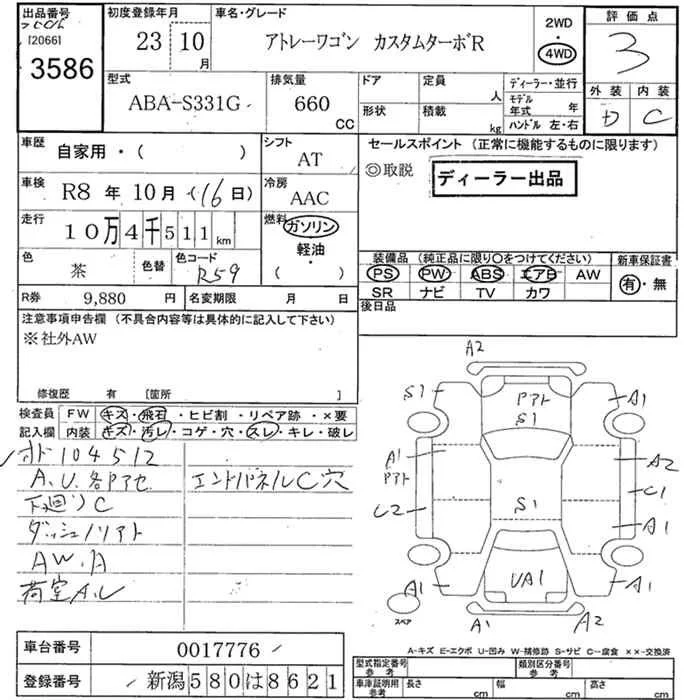 出品番号
[2066]
3586
初度登録年月
23 10
月
車名・グレード
アトレーワゴン カスタムターボR
2WD
・
4WD
評価点
3
外装 内装
D C
型式
ABA-S331G
排気量
660
CC
ドア
定員
人
形状
積載
kg
ディーラー・並行
モデル
年式 年
ハンドル 左・右
車歴
自家用・( )
シフト
AT
車検
R8 年 10 月 (16 日)
冷房
AAC
走行
10万4千511km
燃料
ガソリン
・
軽油
・
( )
色
茶
色替
色コード
R59
R券 9,880 円
名変期限 月 日
セールスポイント (正常に機能するものに限ります)
◎取説
ディーラー出品
装備品 (純正品に限り○をつけてください)
PS PW ABS エアB AW
SR ナビ TV カワ
新車保証書
有・無
後日品
注意事項申告欄 (不具合内容等は具体的に記入して下さい)
※社外AW
修復歴 有 [箇所 ]
検査員
記入欄
FW キズ・飛石・ヒビ割・リペア跡・×要
内装 キズ・汚レ・コゲ・穴・スレ・キレ・破レ
オド104512
A.U.各Pアセ
エンドパネルC穴
下廻りC
ダッシュノリアト
AW.A
荷室A.レ
A2
S1
Pアト
S1
A1
A1
Pアト
A2
C2
S1
C1
A1
A1
UA1
A1
スペア
A1
A2
A-キズ E-エクボ U-凹み W-補修跡 S-サビ C-腐食 ××-交換済
車台番号 0017776
登録番号 新潟580は8621
型式指定番号
参考
類別区分番号
参考
車庫証明用
参考
長さ cm
幅 cm
高さ cm